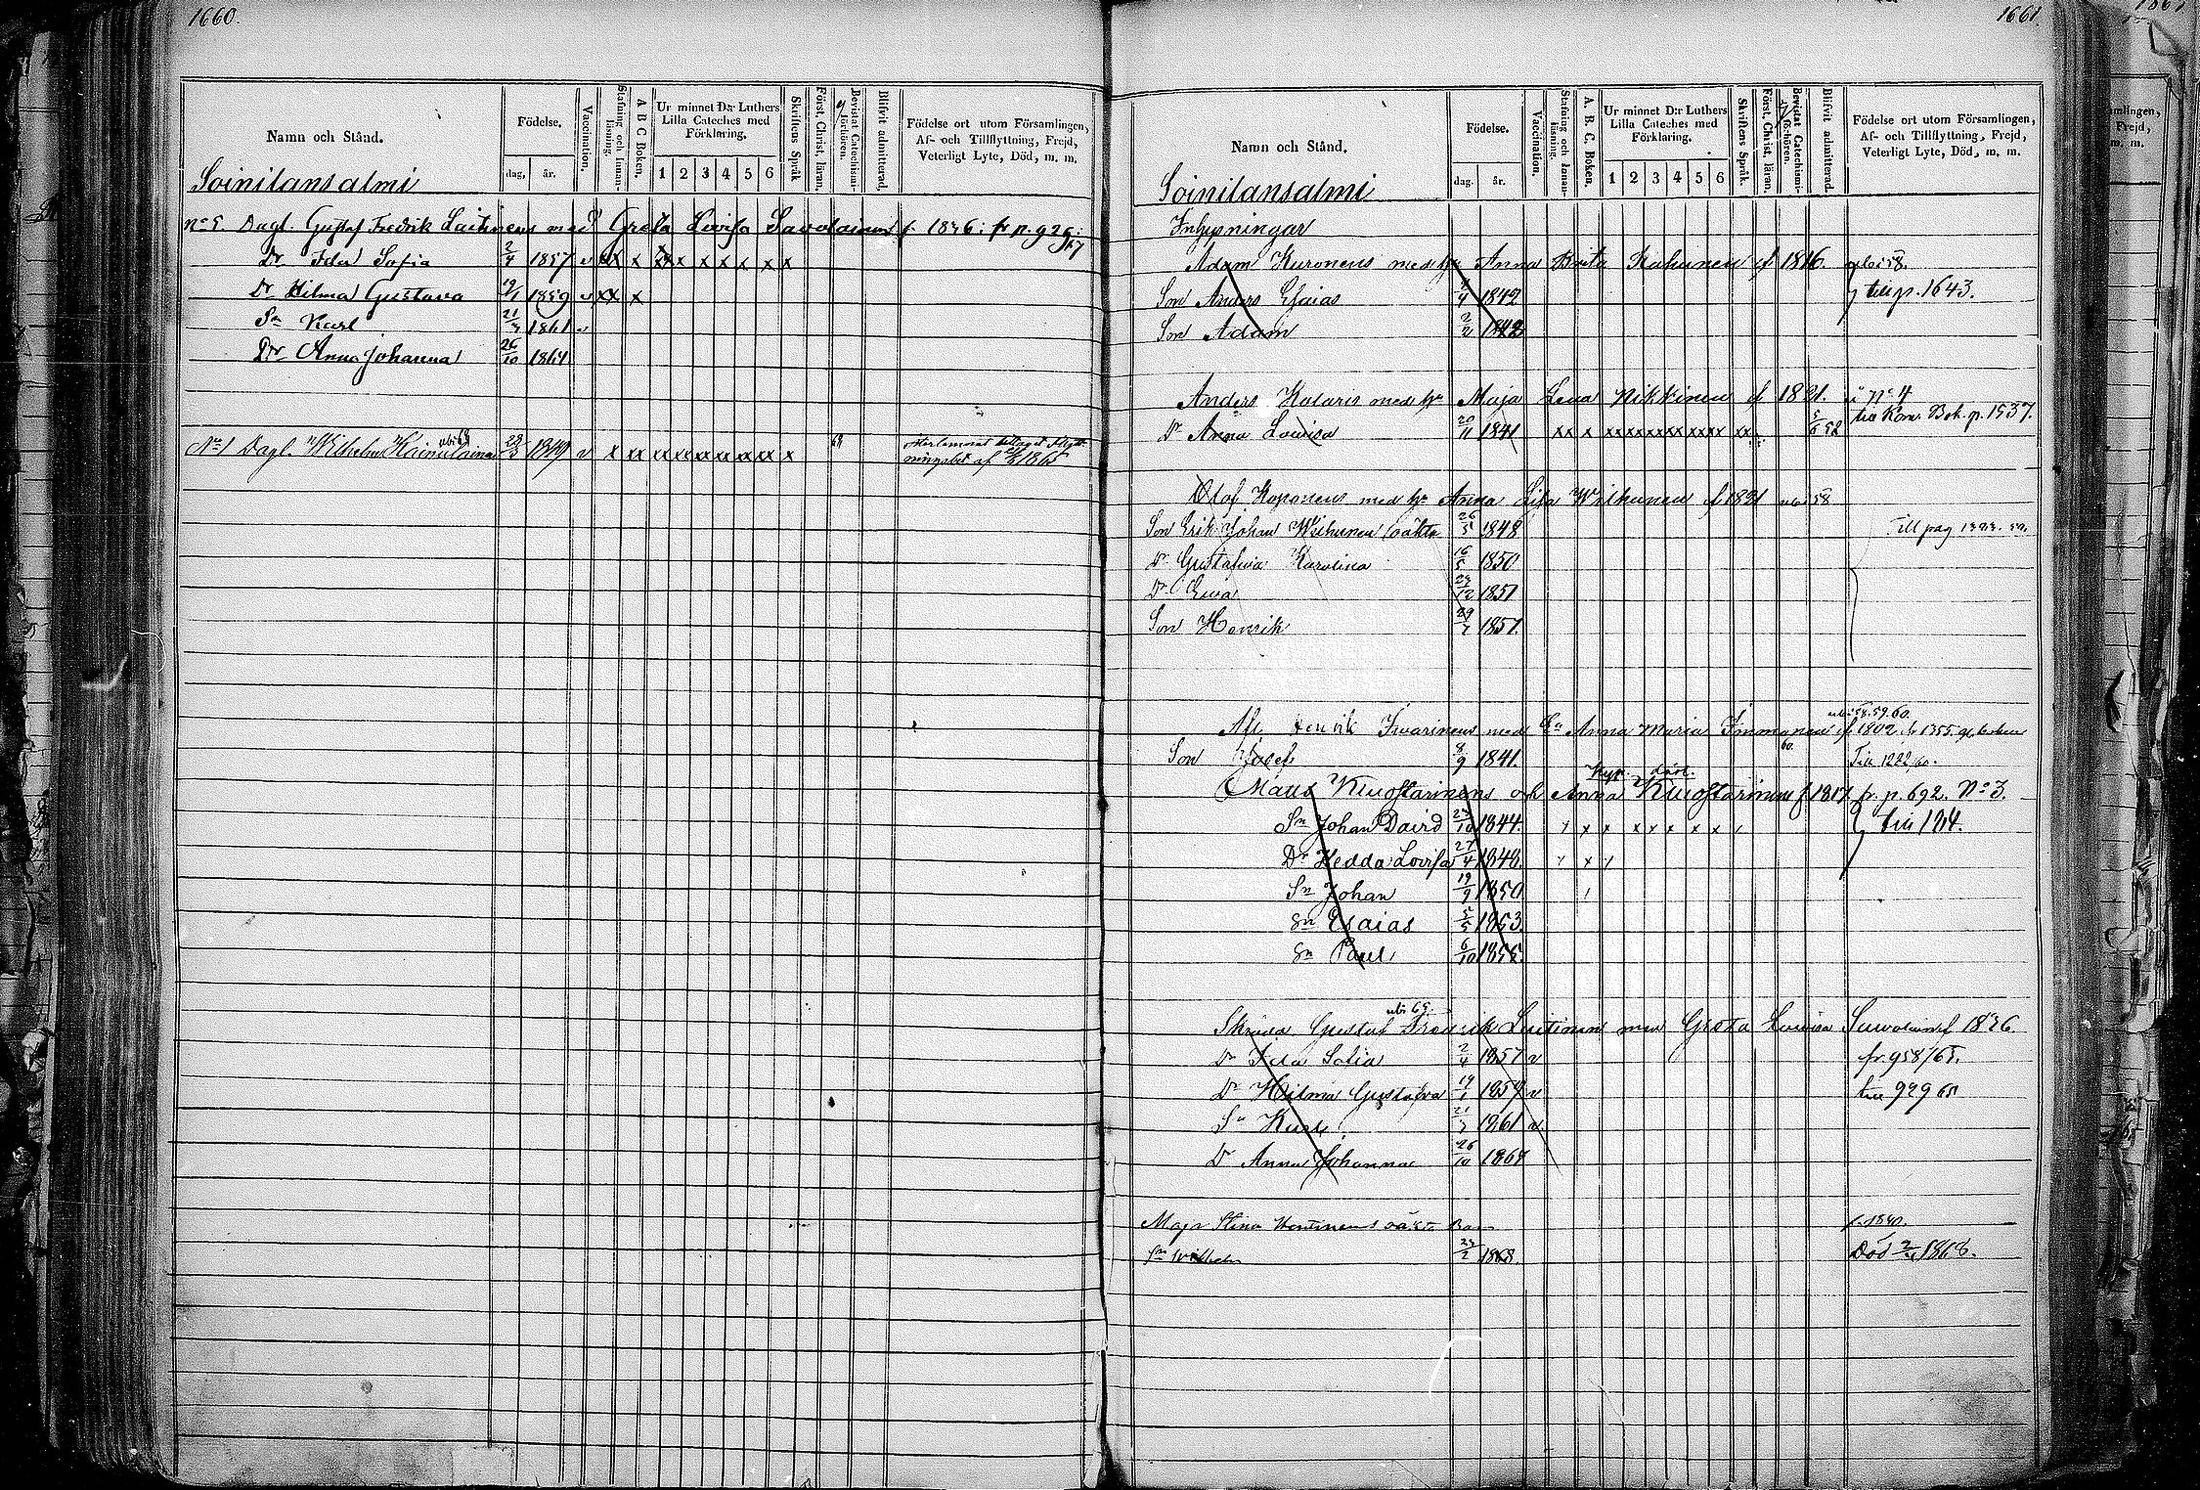 1660.
Namn och Stånd.
Födelse.
dag. år.
Vaccination.
Stafning och Innan-läsning.
A B C Boken.
Ur minnet D:r Luthers
Lilla Cateches med
Förklaring.
1 2 3 4 5 6
Skriftens Språk
Först. Christ. läran.
Bevistat Catechismi-förhören.
Blifvit admitterad.
Födelse ort utom Församlingen,
Af- och Tillflyttning, Frejd,
Veterligt Lyte, Död, m. m.
Soinilansalmi
No 5. Dagl. Gustaf Fredrik Laitinens med Greta Lovisa Savolainen f. 1836: fr p. 929
Dr Ida Sofia 2/4 1857 v x x x x x x x x x
Dr Hilma Gustava 19/1 1859 v x x x
Sn Karl 21/7 1861 v
Dr Anna Johanna 26/10 1864
No 1 Dagl. Wilhelm Hainulainen 1849 v x xx xx xx xx xx xx x 68
1661.
Namn och Stånd.
Födelse.
dag. år.
Vaccination.
Stafning och Innan-läsning.
A. B. C. Boken.
Ur minnet D:r Luthers
Lilla Cateches med
Förklaring.
1 2 3 4 5 6
Skriftens Språk.
Först. Christ. läran.
Bevistat Catechismi-förhören.
Blifvit admitterad.
Födelse ort utom Församlingen,
Af- och Tillflyttning, Frejd,
Veterligt Lyte, Död, m. m.
Soinilansalmi
Inhysningar
Adam Kuronens med hu Anna Brita Kahunen f 1816. ubi 58.
Son Anders Esaias /4 1842 till p. 1643.
Son Adam 2/2 1842
Anders Kataris med hu Maja Lena Nikkinen f 1821. i No 4
Dr Anna Lovisa 20/11 1841 xx x xx xx xx xx xx xx 52 Kom. Bok. p. 1537.
Olof Koponens med hu Anna Lisa Wilhunen f 1821 ubi 58
Son Erik Johan Wilhunen oäkta 26/5 1848 Till pag
Dr Gustafwa Karolina 16/5 1850
Dr Ewa /12 1851
Son Henrik 29/7 1857.
ubi 58.59.60.
Afl. Henrik Iwarinens med Ea Anna Maria Immonen f 1802 fr 1355
60.
Son Josef 8/9 1841. Till 1222/60.
Mats Kuostarinens och Anna Kuostarinen f 1817 fr. p. 692. No 3.
Sn Johan David /10 1844. x x x x x x x x till 1214.
Dr Hedda Lovisa 27/4 1848.
Sn Johan 19/9 1850
Sn Esaias 5/5 1853.
Sn Paul 6/10 1855.
ubi 65.
Gustaf Fredrik Laitinens med Greta Lovisa Savolainen f 1836.
Dr Ida Sofia 2/4 1857 v fr. 958/65.
Dr Hilma Gustafva 19/1 1859 v till 929 65
Sn Karl 21/7 1861 v.
Dr Anna Johanna 26/10 1864
Maja Stina Kontinens oäkta Barn f. 1840.
Sn Wilhelm 23/2 1868. Död 1868.